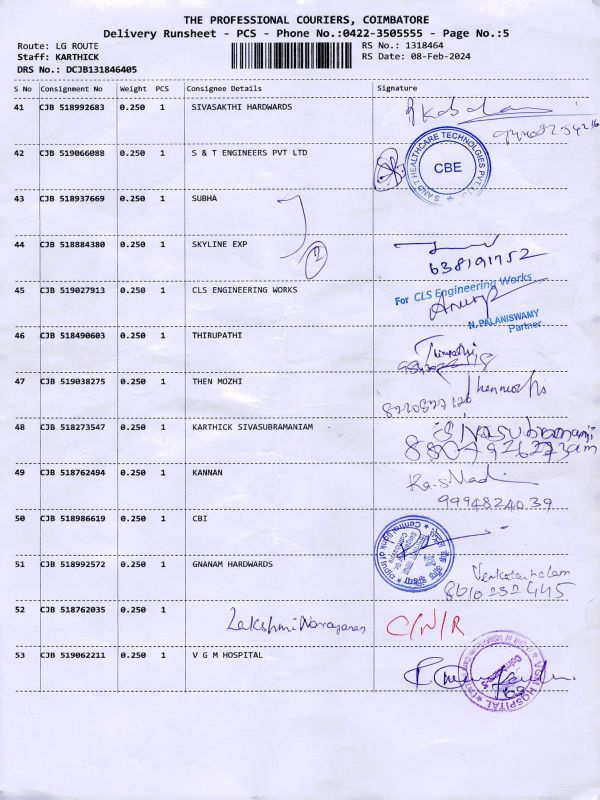 THE PROFESSIONAL COURIERS, COIMBATORE
Delivery Runsheet - PCS - Phone No.:0422-3505555 - Page No.:5
Route: LG ROUTE RS No.: 1318464
Staff: KARTHICK RS Date: 08-Feb-2024
DRS No.: DCJB131846405
S No Consignment No Weight PCS Consignee Details Signature
41 CJB 518992683 0.250 1 SIVASAKTHI HARDWARDS
42 CJB 519066088 0.250 1 S & T ENGINEERS PVT LTD
S AND T HEALTHCARE TECHNOLOGIES PVT LTD CBE
43 CJB 518937669 0.250 1 SUBHA
44 CJB 518884380 0.250 1 SKYLINE EXP
2
638191752
45 CJB 519027913 0.250 1 CLS ENGINEERING WORKS
For CLS Engineering Works
N. PALANISWAMY
Partner
46 CJB 518490603 0.250 1 THIRUPATHI
Thirupathi
47 CJB 519038275 0.250 1 THEN MOZHI
48 CJB 518273547 0.250 1 KARTHICK SIVASUBRAMANIAM
49 CJB 518762494 0.250 1 KANNAN
9994824039
50 CJB 518986619 0.250 1 CBI
Central Bank of India
51 CJB 518992572 0.250 1 GNANAM HARDWARDS
Venkatachalam
8610232445
52 CJB 518762035 0.250 1 Lakshmi Narayanan C/N/R
53 CJB 519062211 0.250 1 V G M HOSPITAL
VGM HOSPITAL
Coimbatore-5